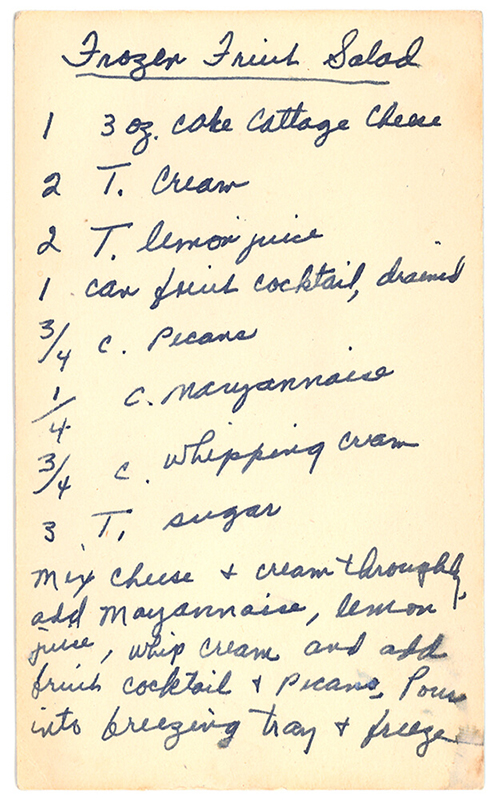 Frozen Fruit Salad
1 3 oz. cake Cottage Cheese
2 T. Cream
2 T. lemon juice
1 can fruit cocktail, drained
3/4 c. Pecans
1/4 c. Mayannaise
3/4 c. whipping cream
3 T. sugar
Mix cheese + cream throughly,
add Mayannaise, lemon
juice, whip cream and add
fruit cocktail + pecans. Pour
into freezing tray + freeze